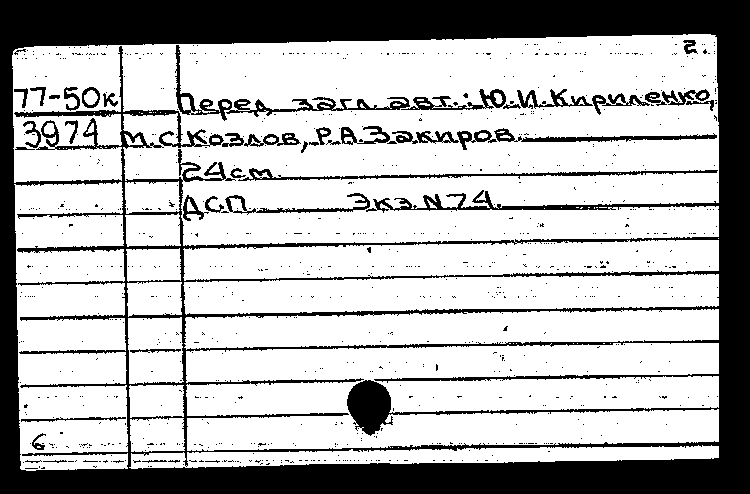 2.
77-50к Перед загл. авт.: Ю.И.Кириленко,
3974 М.С.Козлов, Р.А.Закиров.
24см.
ДСП Экз.N74.
6